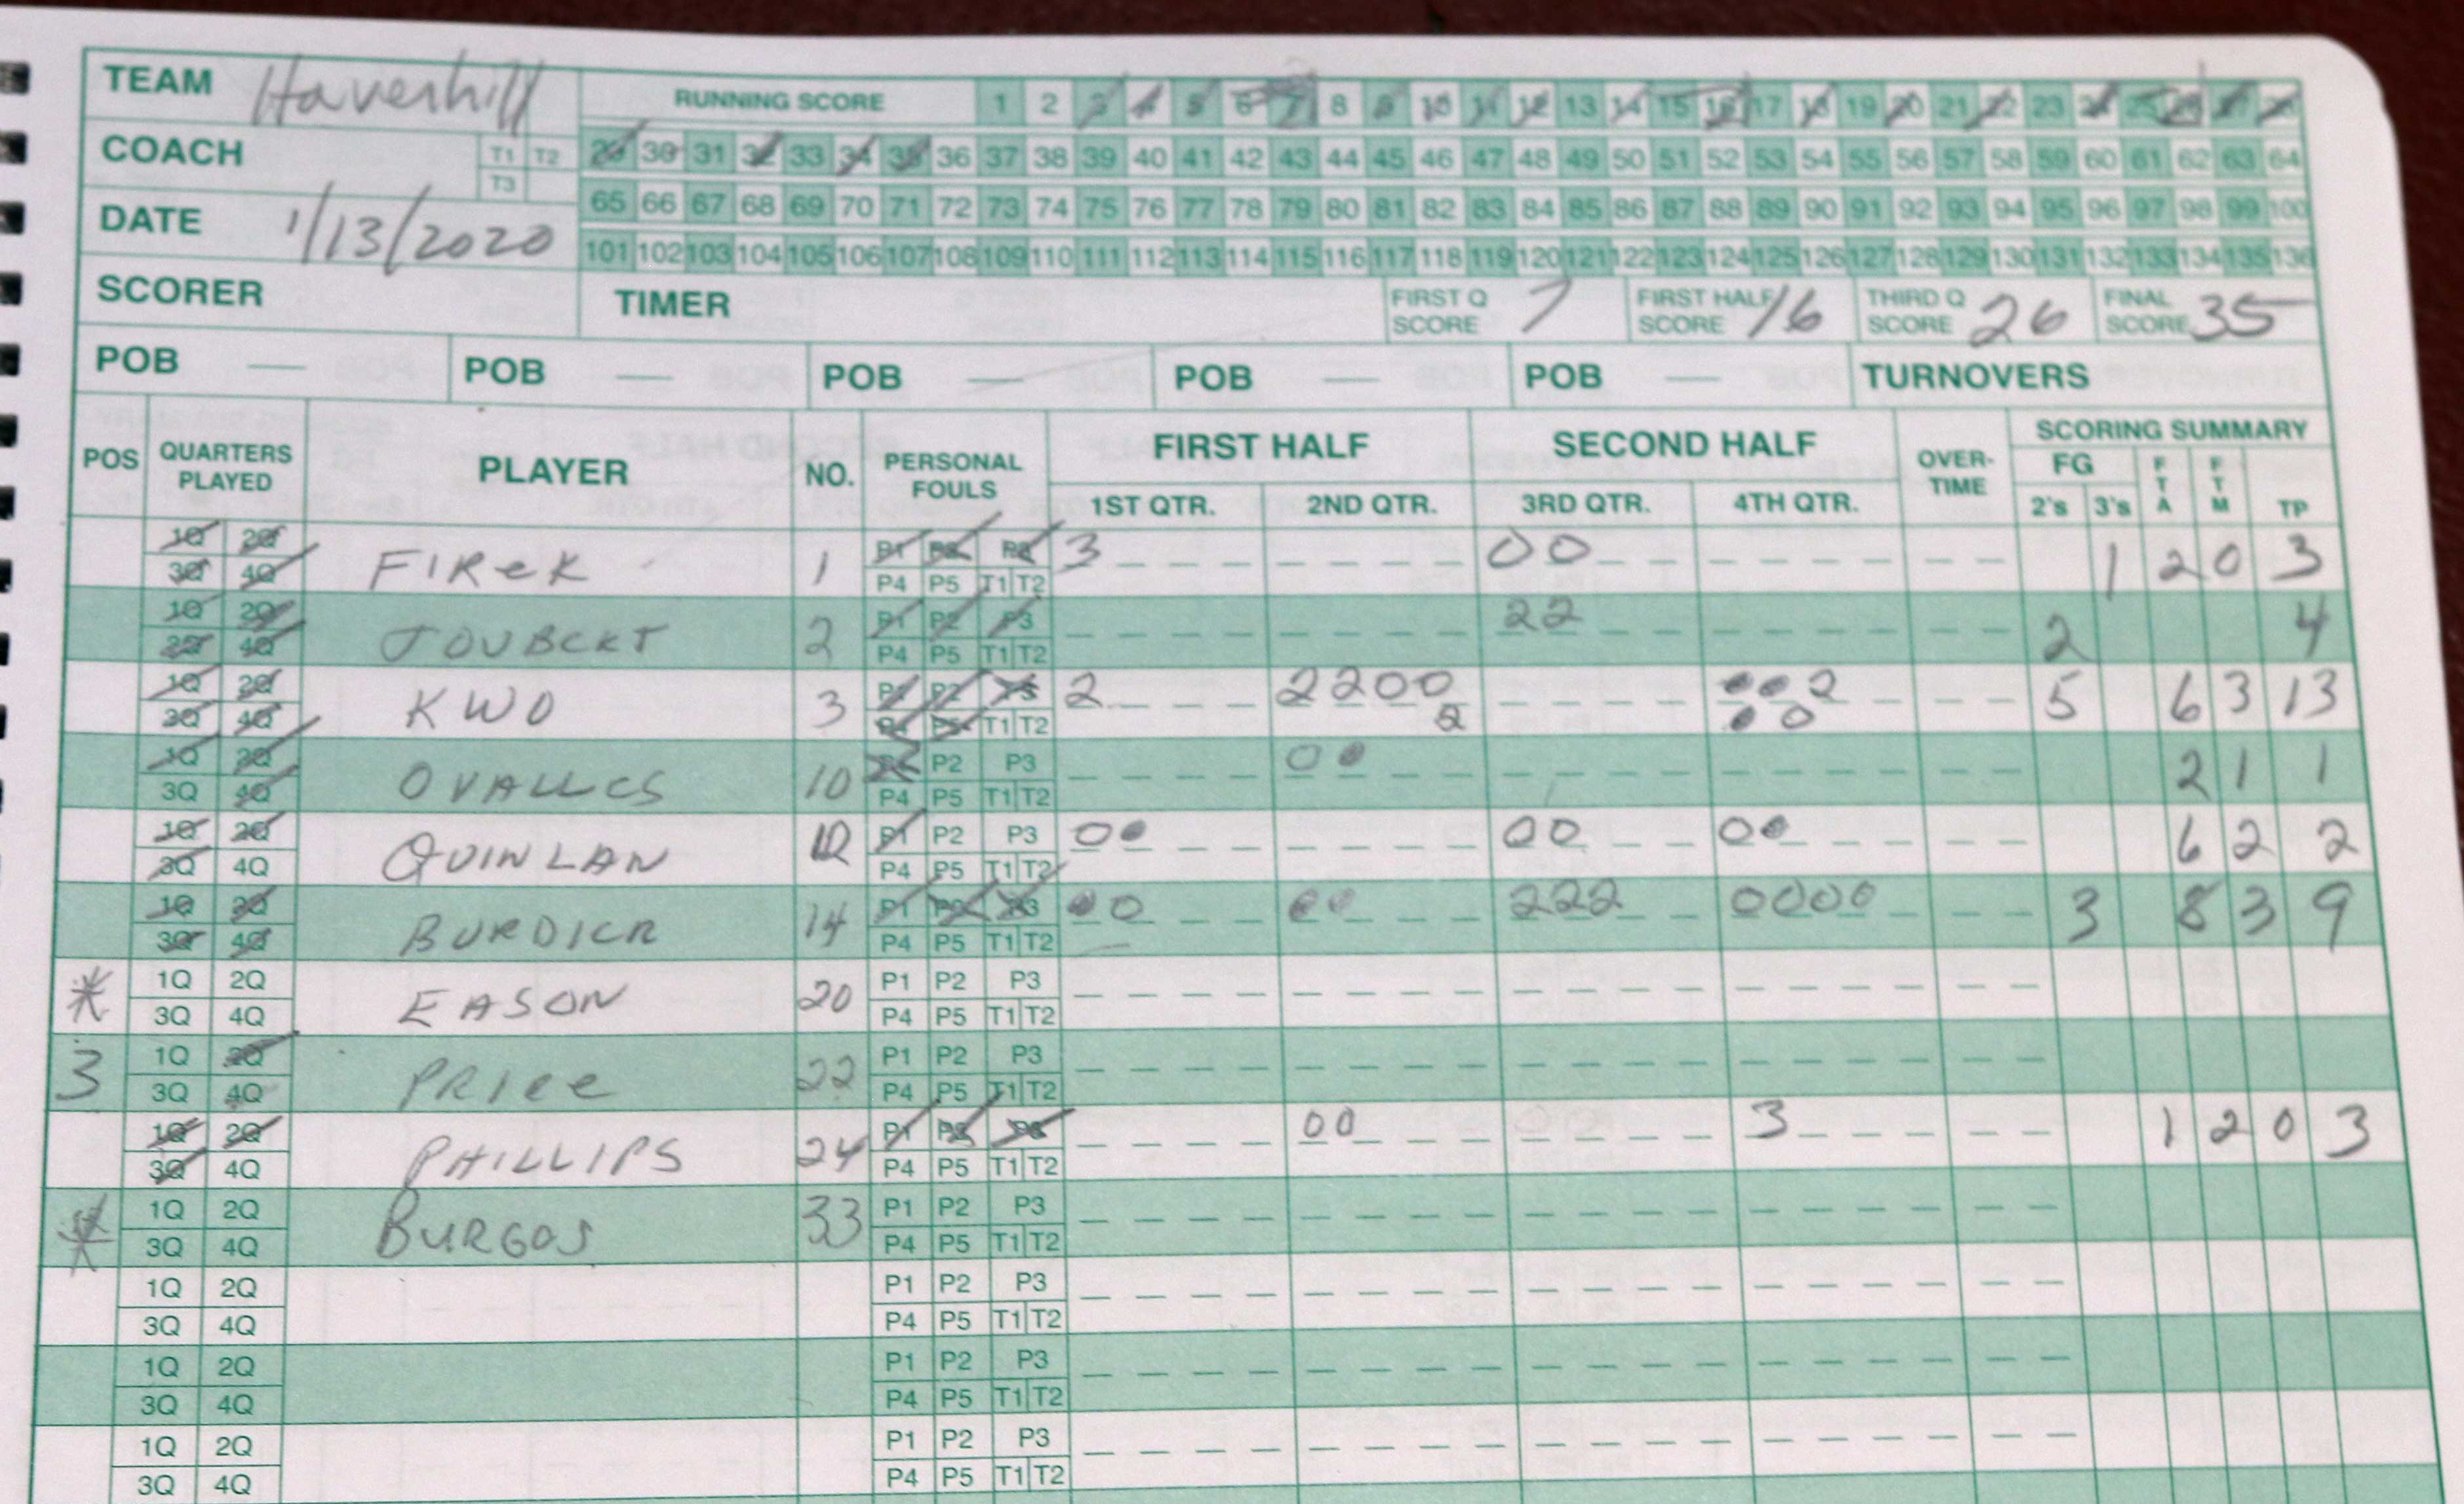 TEAM Haverhill RUNNING SCORE 1 2 3 4 5 6 7 8 9 10 11 12 13 14 15 16 17 18 19 20 21 22 23 24 25 26 27 28
COACH T1 T2 T3 29 30 31 32 33 34 35 36 37 38 39 40 41 42 43 44 45 46 47 48 49 50 51 52 53 54 55 56 57 58 59 60 61 62 63 64
DATE 1/13/2020 65 66 67 68 69 70 71 72 73 74 75 76 77 78 79 80 81 82 83 84 85 86 87 88 89 90 91 92 93 94 95 96 97 98 99 100
101 102 103 104 105 106 107 108 109 110 111 112 113 114 115 116 117 118 119 120 121 122 123 124 125 126 127 128 129 130 131 132 133 134 135 136
SCORER TIMER FIRST Q SCORE 7 FIRST HALF SCORE 16 THIRD Q SCORE 26 FINAL SCORE 35
POB — POB — POB — POB — POB — TURNOVERS
POS QUARTERS PLAYED PLAYER NO. PERSONAL FOULS FIRST HALF SECOND HALF OVER-TIME SCORING SUMMARY
1ST QTR. 2ND QTR. 3RD QTR. 4TH QTR. FG 2's 3's FTA FTM TP
1Q 2Q FIReK 1 P1 P2 P3 3 00 1 2 0 3
3Q 4Q P4 P5 T1 T2
1Q 2Q JOUBERT 2 P1 P2 P3 22 2 4
3Q 4Q P4 P5 T1 T2
1Q 2Q KWO 3 P1 P2 P3 2 2200 2 5 6 3 13
3Q 4Q P4 P5 T1 T2 2 0
1Q 2Q OVALLES 10 P1 P2 P3 0 2 1 1
3Q 4Q P4 P5 T1 T2
1Q 2Q QUINLAN 12 P1 P2 P3 0 00 0 6 2 2
3Q 4Q P4 P5 T1 T2
1Q 2Q BURDICK 14 P1 P2 P3 0 222 0000 3 8 3 9
3Q 4Q P4 P5 T1 T2
* 1Q 2Q EASON 20 P1 P2 P3
3Q 4Q P4 P5 T1 T2
3 1Q 2Q PRIce 22 P1 P2 P3
3Q 4Q P4 P5 T1 T2
1Q 2Q PHILLIPS 24 P1 P2 P3 00 3 1 2 0 3
3Q 4Q P4 P5 T1 T2
* 1Q 2Q BURGOS 33 P1 P2 P3
3Q 4Q P4 P5 T1 T2
1Q 2Q P1 P2 P3
3Q 4Q P4 P5 T1 T2
1Q 2Q P1 P2 P3
3Q 4Q P4 P5 T1 T2
1Q 2Q P1 P2 P3
3Q 4Q P4 P5 T1 T2